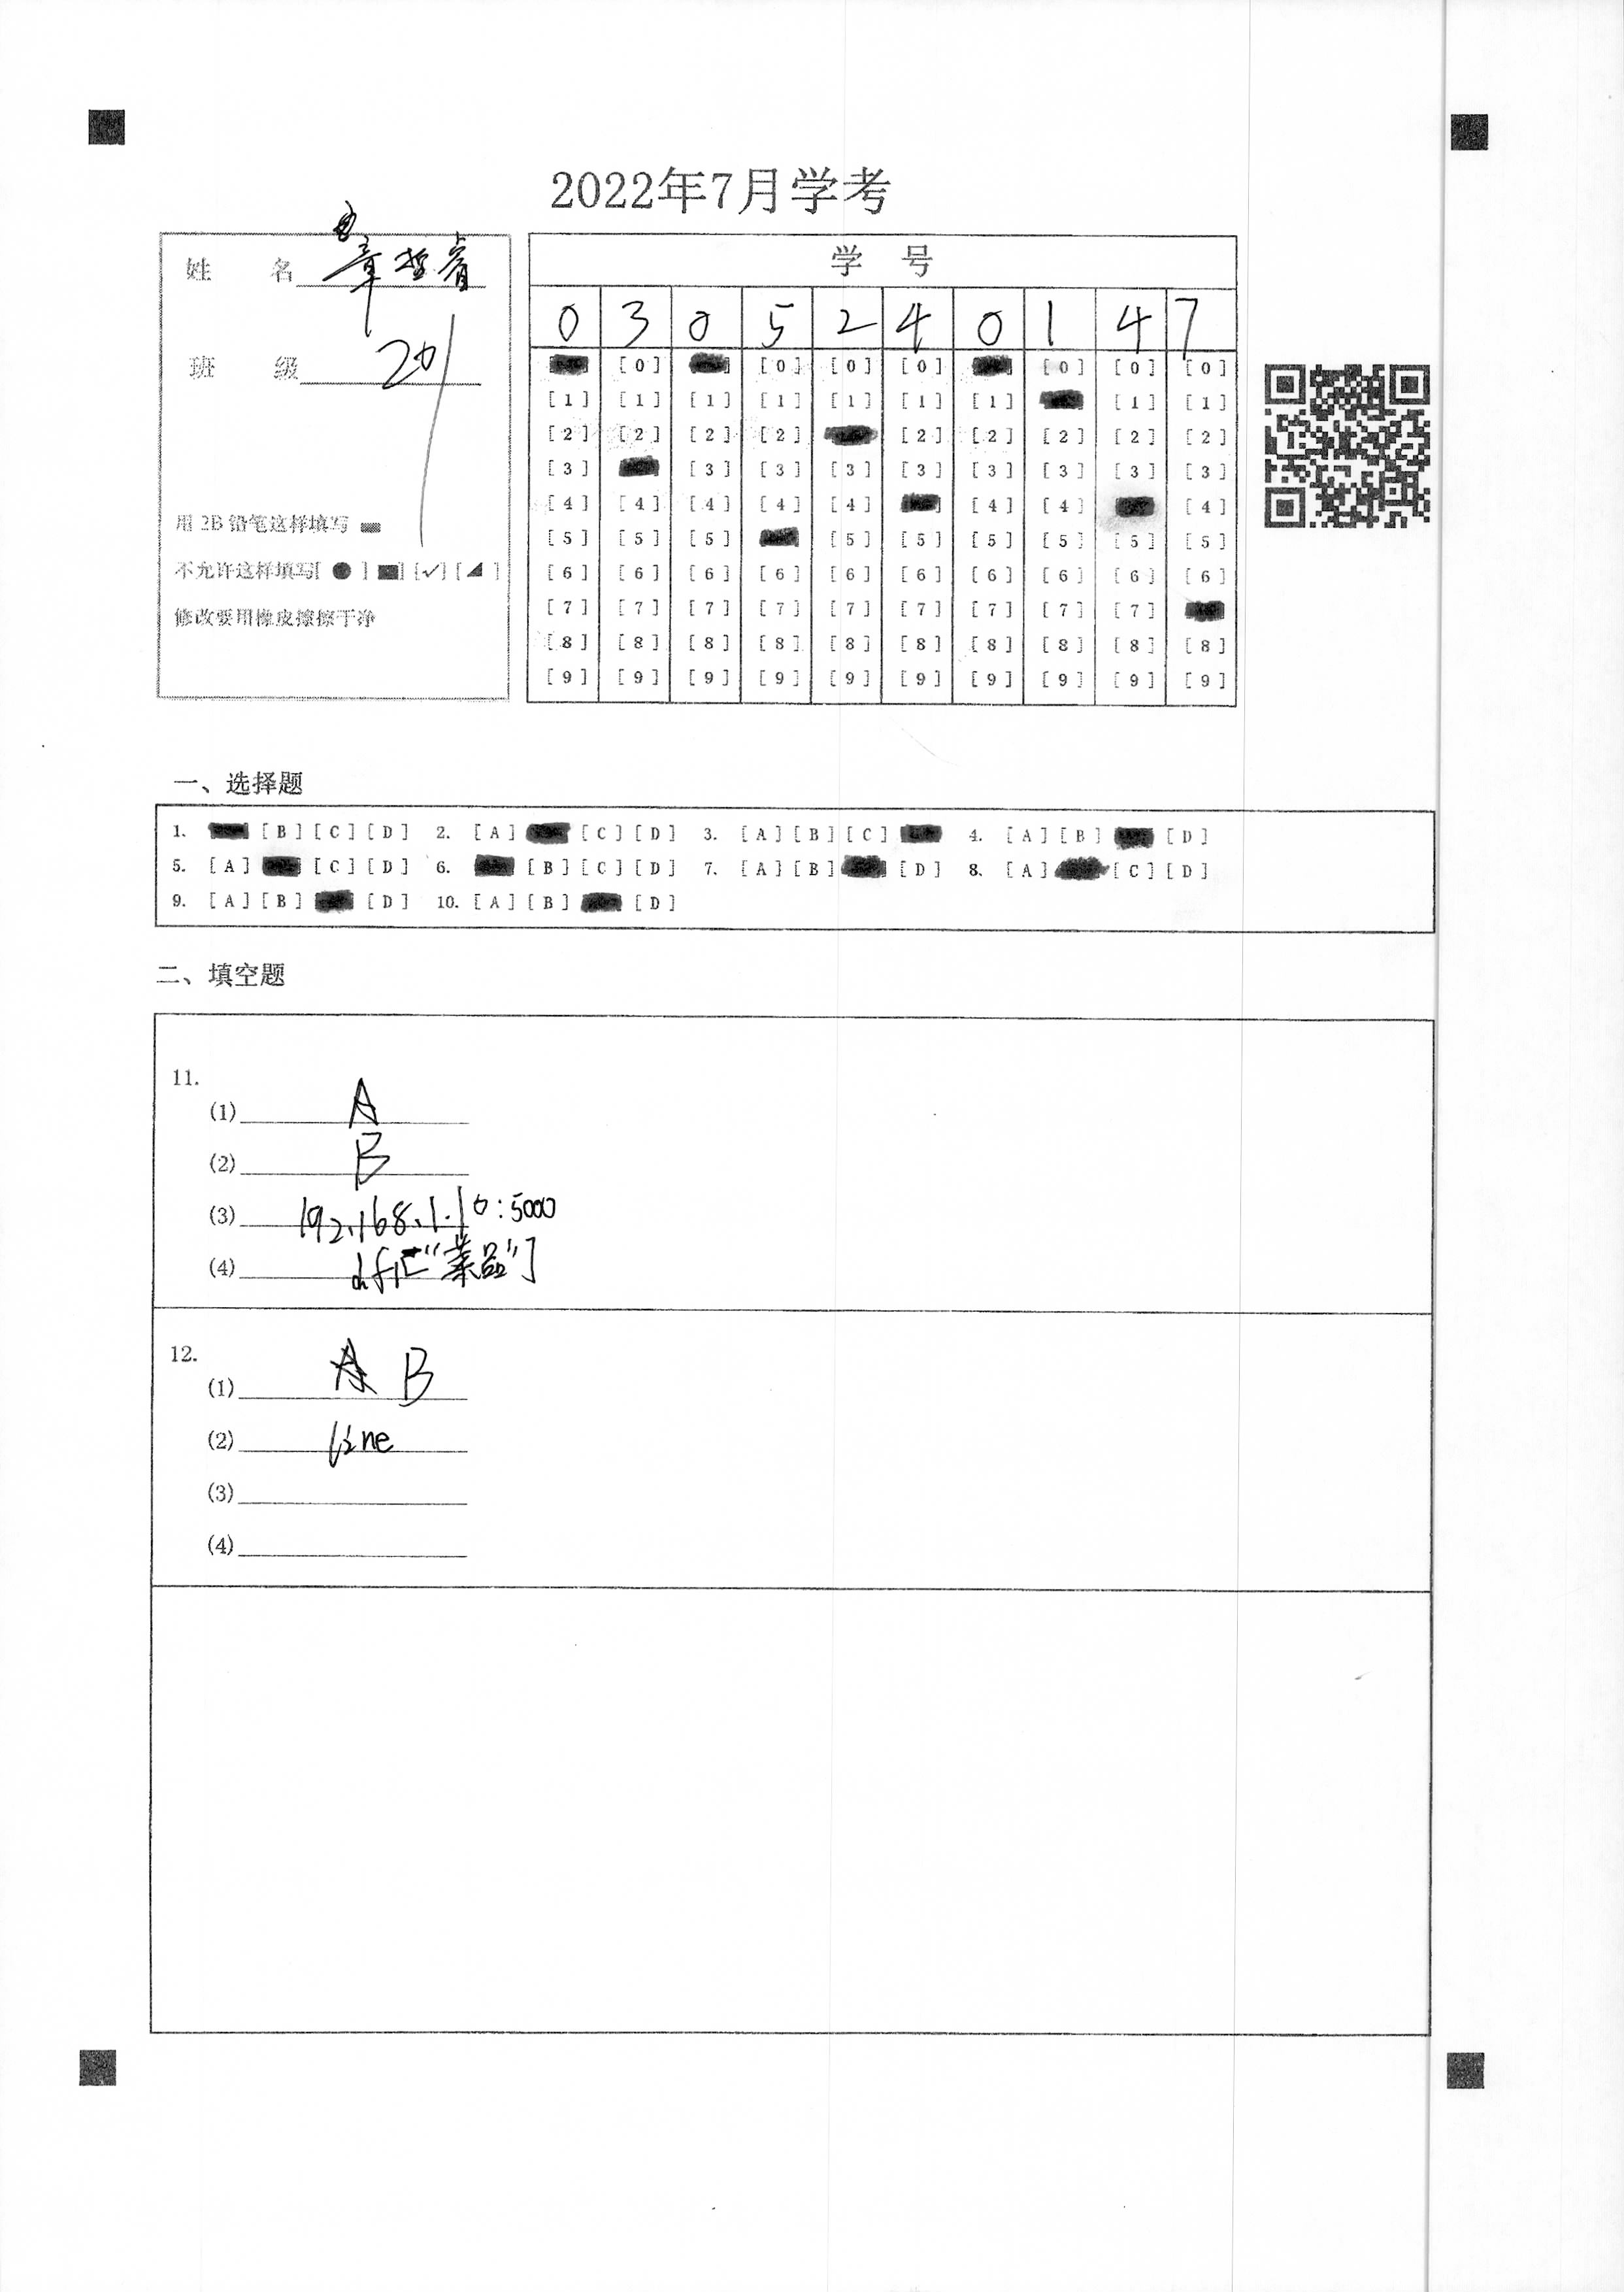 2022年7月学考
姓 名 章哲睿
班 级 201
用 2B 铅笔这样填写
不允许这样填写[ ● ] [■] [✓] [◢ ]
修改要用橡皮擦擦干净
学 号
0 3 0 5 2 4 0 1 4 7
[0] [0] [0] [0] [0] [0] [0]
[1] [1] [1] [1] [1] [1] [1] [1] [1]
[2] [2] [2] [2] [2] [2] [2] [2] [2]
[3] [3] [3] [3] [3] [3] [3] [3] [3]
[4] [4] [4] [4] [4] [4] [4] [4]
[5] [5] [5] [5] [5] [5] [5] [5] [5]
[6] [6] [6] [6] [6] [6] [6] [6] [6] [6]
[7] [7] [7] [7] [7] [7] [7] [7] [7]
[8] [8] [8] [8] [8] [8] [8] [8] [8] [8]
[9] [9] [9] [9] [9] [9] [9] [9] [9] [9]
一、选择题
1. [B] [C] [D] 2. [A] [C] [D] 3. [A] [B] [C] 4. [A] [B] [D]
5. [A] [C] [D] 6. [B] [C] [D] 7. [A] [B] [D] 8. [A] [C] [D]
9. [A] [B] [D] 10. [A] [B] [D]
二、填空题
11.
(1) A
(2) B
(3) 192.168.1.10:5000
(4) df1["菜品"]
12.
(1) B
(2) line
(3)
(4)